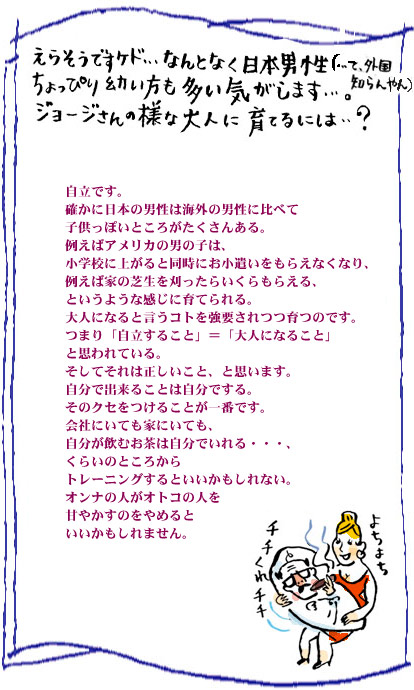 えらそうですケド… なんとなく日本男性(…って、外国知らんやん)
ちょっぴり幼い方も多い気がします…。
ジョージさんの様な大人に育てるには‥?
自立です。
確かに日本の男性は海外の男性に比べて
子供っぽいところがたくさんある。
例えばアメリカの男の子は、
小学校に上がると同時にお小遣いをもらえなくなり、
例えば家の芝生を刈ったらいくらもらえる、
というような感じに育てられる。
大人になると言うコトを強要されつつ育つのです。
つまり「自立すること」＝「大人になること」
と思われている。
そしてそれは正しいこと、と思います。
自分で出来ることは自分でする。
そのクセをつけることが一番です。
会社にいても家にいても、
自分が飲むお茶は自分でいれる・・・、
くらいのところから
トレーニングするといいかもしれない。
オンナの人がオトコの人を
甘やかすのをやめると
いいかもしれません。
よちよち
チチくれチチ